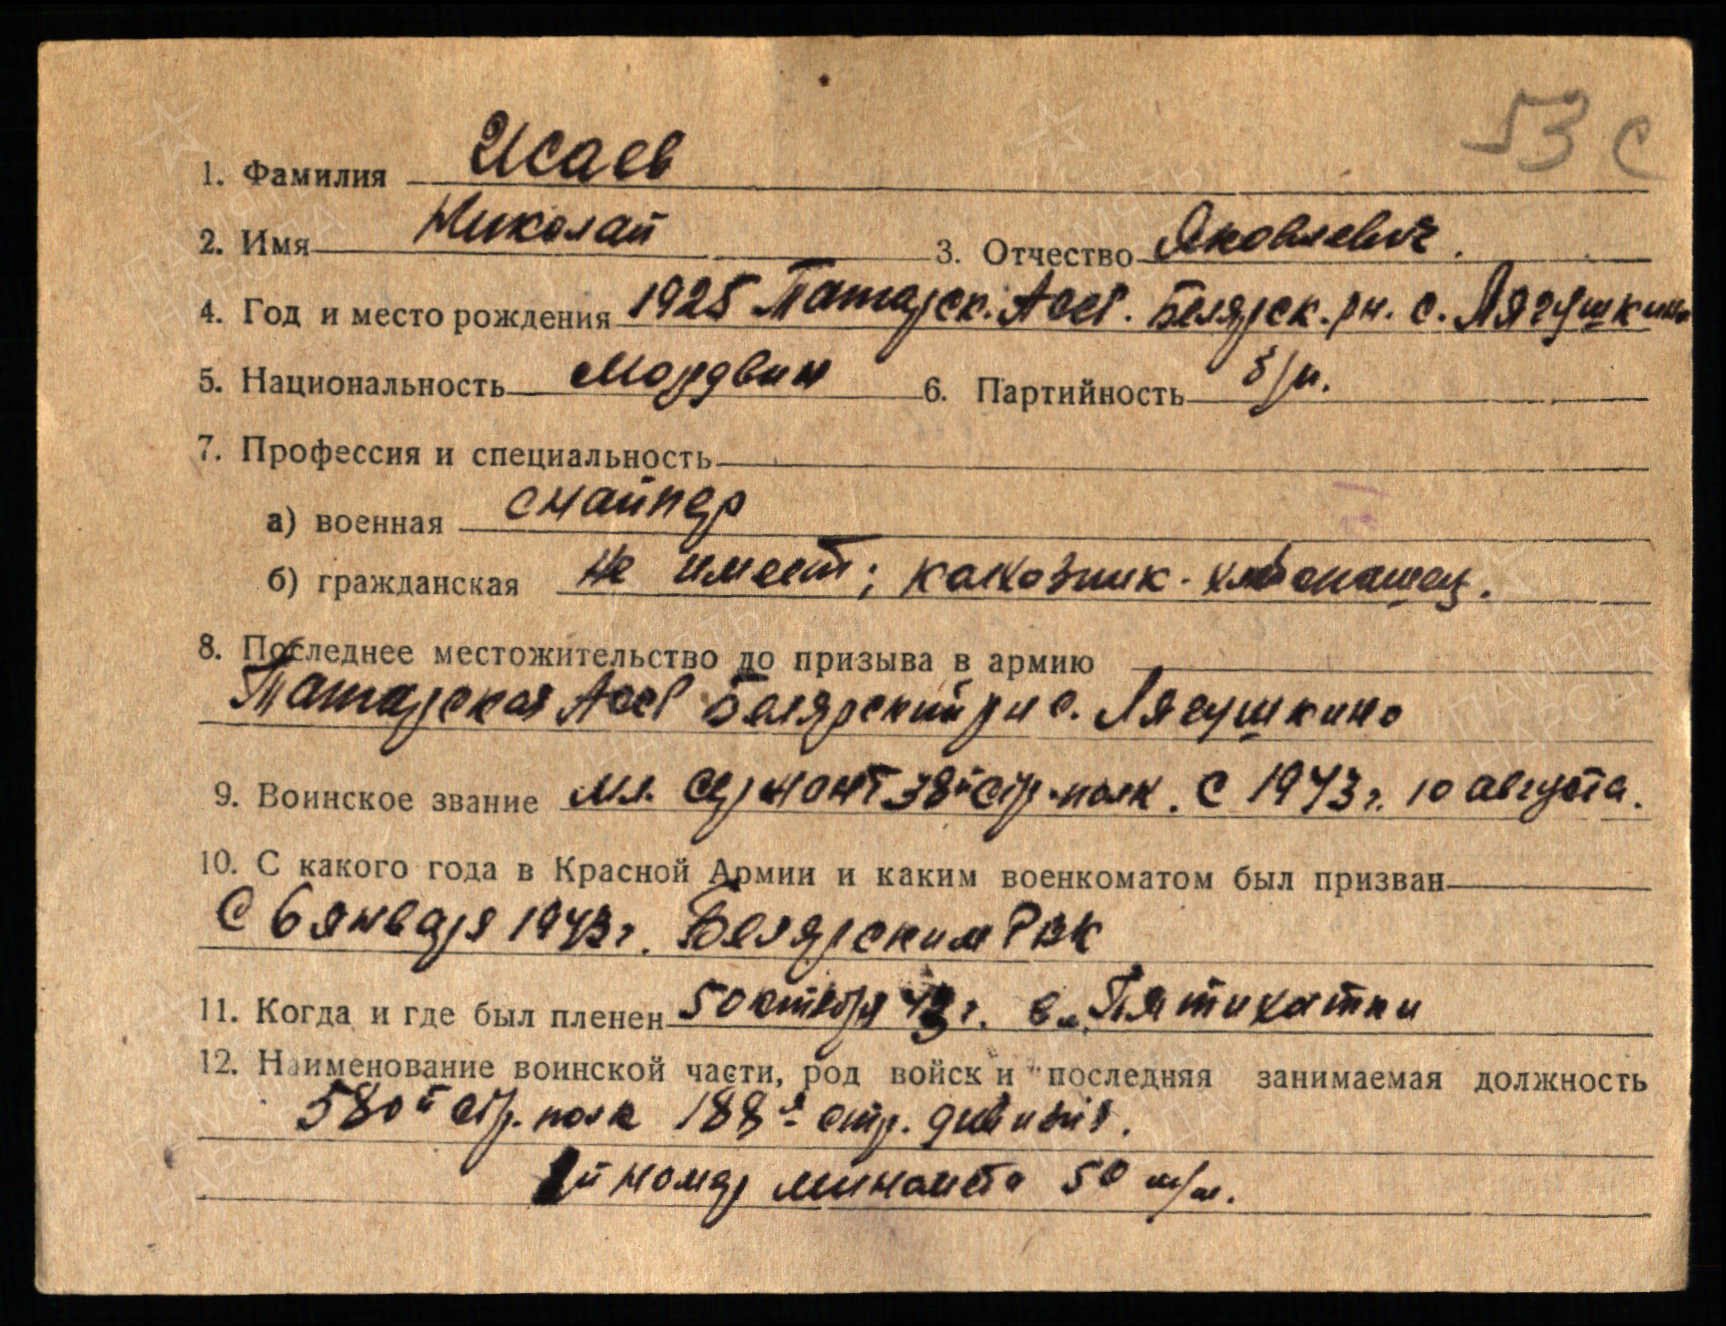 53 с
1. Фамилия Исаев
2. Имя Николай 3. Отчество Яковлевич.
4. Год и место рождения 1925 Татарск. АССР. Белярск. рн. с. Лягушкино
5. Национальность мордвин 6. Партийность б/п.
7. Профессия и специальность
а) военная снайпер
б) гражданская не имеет; колхозник-хлебопашец.
8. Последнее местожительство до призыва в армию
Татарская АССР Белярский рн с. Лягушкино
9. Воинское звание мл. сержант 38й стр. полк. С 1943 г. 10 августа.
10. С какого года в Красной Армии и каким военкоматом был призван
С 6 января 1943 г. Белярским РВК
11. Когда и где был пленен 5 октября 43 г. в Пятихатки
12. Наименование воинской части, род войск и последняя занимаемая должность
580й стр. полк 188я стр. дивизия.
й номер миномета 50 м/м.
ПАМЯТЬ НАРОДА